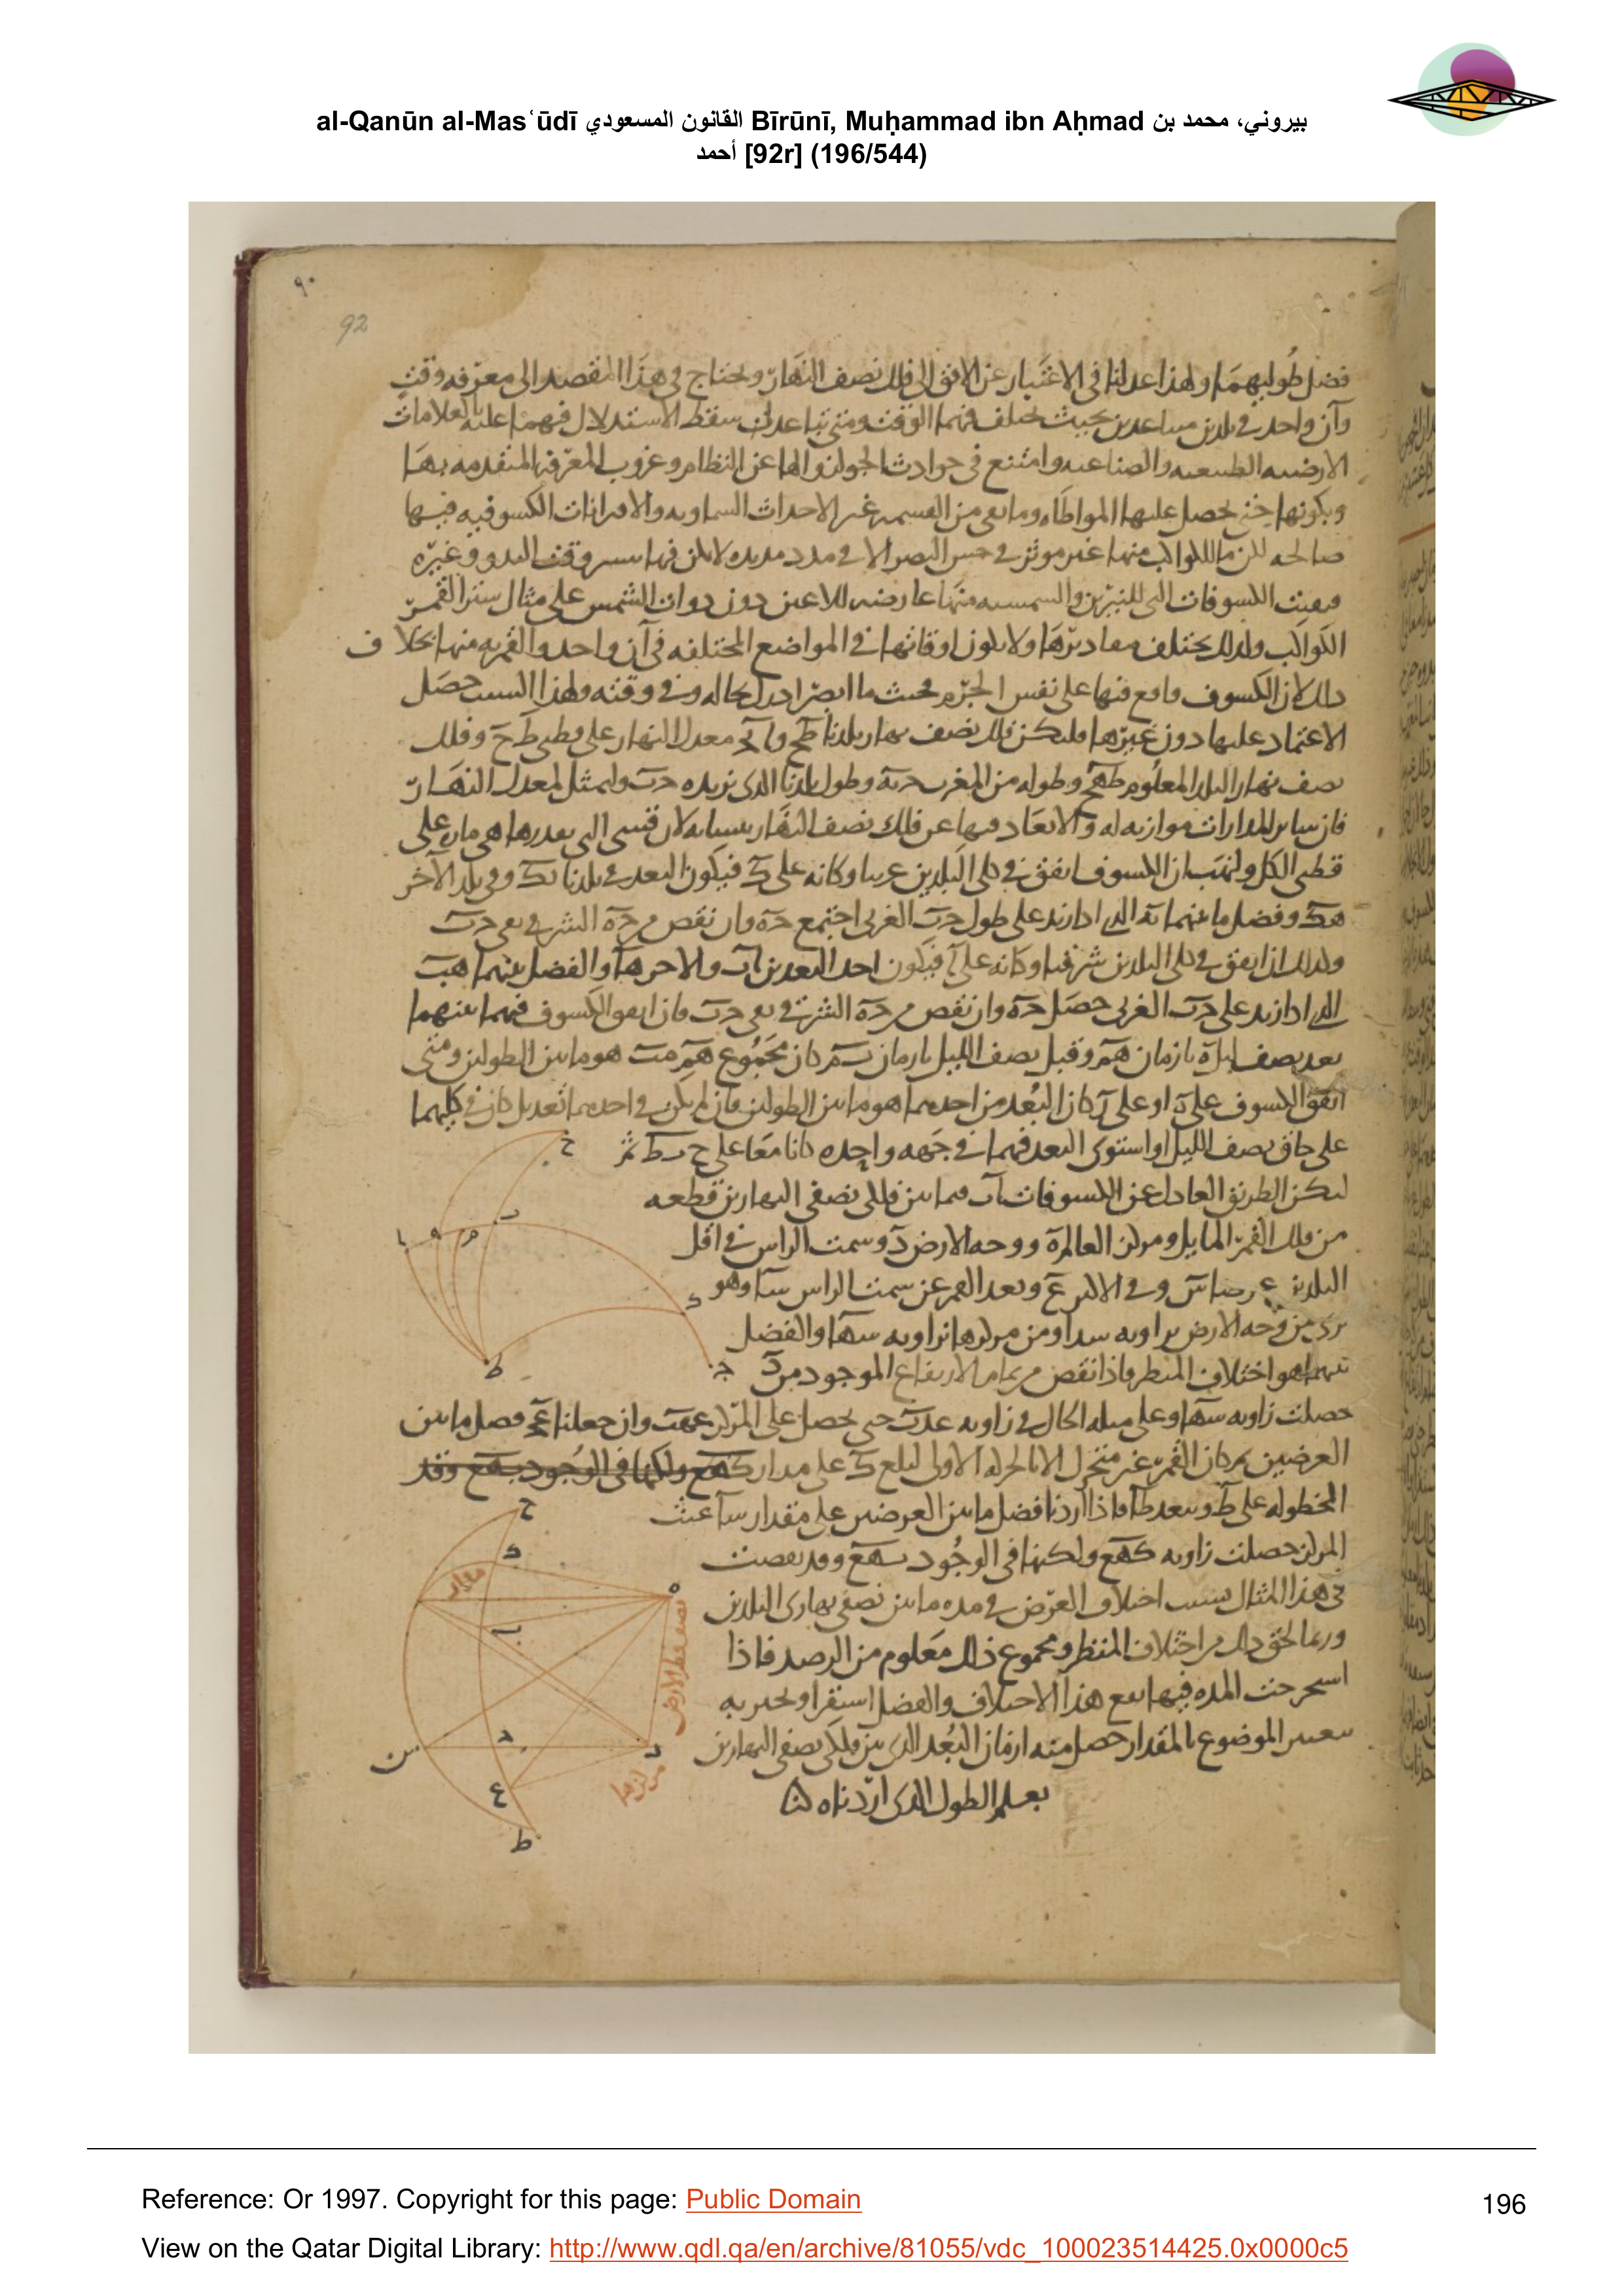 al-Qanūn al-Masʿūdī القانون المسعودي Bīrūnī, Muḥammad ibn Aḥmad بيروني، محمد بن
أحمد [92r] (196/544)
٩٠
92
فضل طوليهما ولهذا عدلنا في الاعتبار عن الافق الى فلك نصف النهار ونحتاج في هذا المقصد الى معرفه وقت
وآن واحد في بلدين متباعدين بحيث يختلف فيهما الوقت ومتى تباعدا سقط الاستدلال فيهما عليه بالعلامات
الارضيه الطبيعيه والصناعيه وامتنع في حوادث الجو لزوالها عن النظام وعزوب المعرفه المتقدمه بها
وبكونها حتى يحصل عليها المواطاه وما بقي من القسمه غير الاحداث السماويه والاقترانات الكسوفيه فيها
صالحه لكن ما للكواكب منها غير موثر في حس البصر الا في مدد مديده لا يمكن فيها وقت البدو وغيره
فبقيت الكسوفات التي للنيرين والشمسيه منها عارضه للاعين دون ذوات الشمس على مثال ستر القمر
الكواكب ولذلك يختلف مقاديرها ولا يكون اوقاتها في المواضع المختلفه في آن واحد والقمريه منها بخلاف
ذلك لان الكسوف واقع فيها على نفس الجرم بحيث ما ابصر ادرك بحاله وفي وقته ولهذا السبب حصل
الاعتماد عليها دون غيرها فليكن فلك نصف نهار بلدنا طح و معدل النهار على قطبي ط ح وفلك
نصف نهار البلد المعلوم طهح وطوله من المغرب حه وطول بلدنا الذي نريده حب وليمثل لمعدل النهار
فان ساير المدارات موازيه له والابعاد فيها عن فلك نصف النهار متشابهه لان قسي التي بقدرها هي ماره على
قطبي الكل ولنهب ان الكسوف اتفق في كلي البلدين غربيا وكانه على ك فيكون البعد في بلدنا بك وفي بلد الآخر
هك وفضل ما بينهما به الذي اذا زيد على طول حب الغربي اجتمع حه وان نقص من حه الشرقي بقي حب
وكذلك ان اتفق في كلي البلدين شرقيا وكانه على ا فيكون احد البعدين اب والاخر ها والفضل بينهما هب
الذي اذا زيد على حب الغربي حصل حه وان نقص من حه الشرقي بقي حب فان اتفق الكسوف فيهما بينهما
بعد نصف ليل ه بازمان هم وقبل نصف الليل بازمان كان مجموع هم مب هو ما بين الطولين ومتى
اتفق الكسوف على ه او على ب كان البعد من احدهما هو ما بين الطولين فان لم يكن في احدهما تعديل كان في كليهما
على حاق نصف الليل او استوى البعد فيهما في جهه واحده كانا معا على ح ب ط ثم
ليكن الطريق العادل عن الكسوفات اب فيما بين فلكي نصفي النهارين قطعه
من فلك القمر المايل ومركز العالم ه ووجه الارض د وسمت الراس في اقل
البلدين وفي الاكبر ع وبعد القمر عن سمت الراس سا وهو
يرى من وجه الارض بزاويه سدا ومن مركزها بزاويه سها والفضل
بينهما هو اختلاف المنظر فاذا نقص من تمام الارتفاع الموجود من د
حصلت زاويه سها وعلى مثله الحال في زاويه عدب حتى يحصل على المركز عهب وان جعلنا فضل ما بين
العرضين كان القمر غير متحرك الا بالحركه الاولى لبلغ ك على مدار
المخطوله على ط وبعد طا فاذا اردنا فضل ما بين العرضين على مقدار سا عند
المركز حصلت زاويه كهع ولكنها في الوجود بهع وقد نقصت
في هذا المثال بسبب اختلاف العرض في مده ما بين نصفي نهاري البلدين
وربما لحق ذلك من اختلاف المنظر ومجموع ذلك معلوم من الرصد فاذا
استخرجت المده فيها مع هذا الاختلاف والفضل استقرا
الموضوع بالمقدار حصل منه ازمان البعد الذي بين فلكي نصفي النهارين
يعلم الطول الذي اردناه
ح
ب
ا
ه
م
ك
ط
ح
ح
ك
مدار
ه
ب
نصف قطر الارض
د
س
مركزها
ع
ط
Reference: Or 1997. Copyright for this page: Public Domain
196
View on the Qatar Digital Library: http://www.qdl.qa/en/archive/81055/vdc_100023514425.0x0000c5